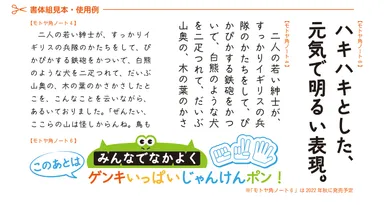 書体組見本・使用例
ハキハキとした、
元気で明るい表現。
二人の若い紳士が、
すっかりイギリスの兵
隊のかたちをして、ぴ
かぴかする鉄砲をかつ
いで、白熊のような犬
を二疋つれて、だいぶ
山奥の、木の葉のかさ
【モトヤ角ノート4】
二人の若い紳士が、すっかりイ
ギリスの兵隊のかたちをして、ぴ
かぴかする鉄砲をかついで、白熊
のような犬を二疋つれて、だいぶ
山奥の、木の葉のかさかさしたと
こを、こんなことを云いながら、
あるいておりました。「ぜんたい、
ここらの山は怪しからんね。鳥も
【モトヤ角ノート6】
このあとは
みんなでなかよく
ゲンキいっぱいじゃんけんポン！
※「モトヤ角ノート6」は2022年秋に発売予定